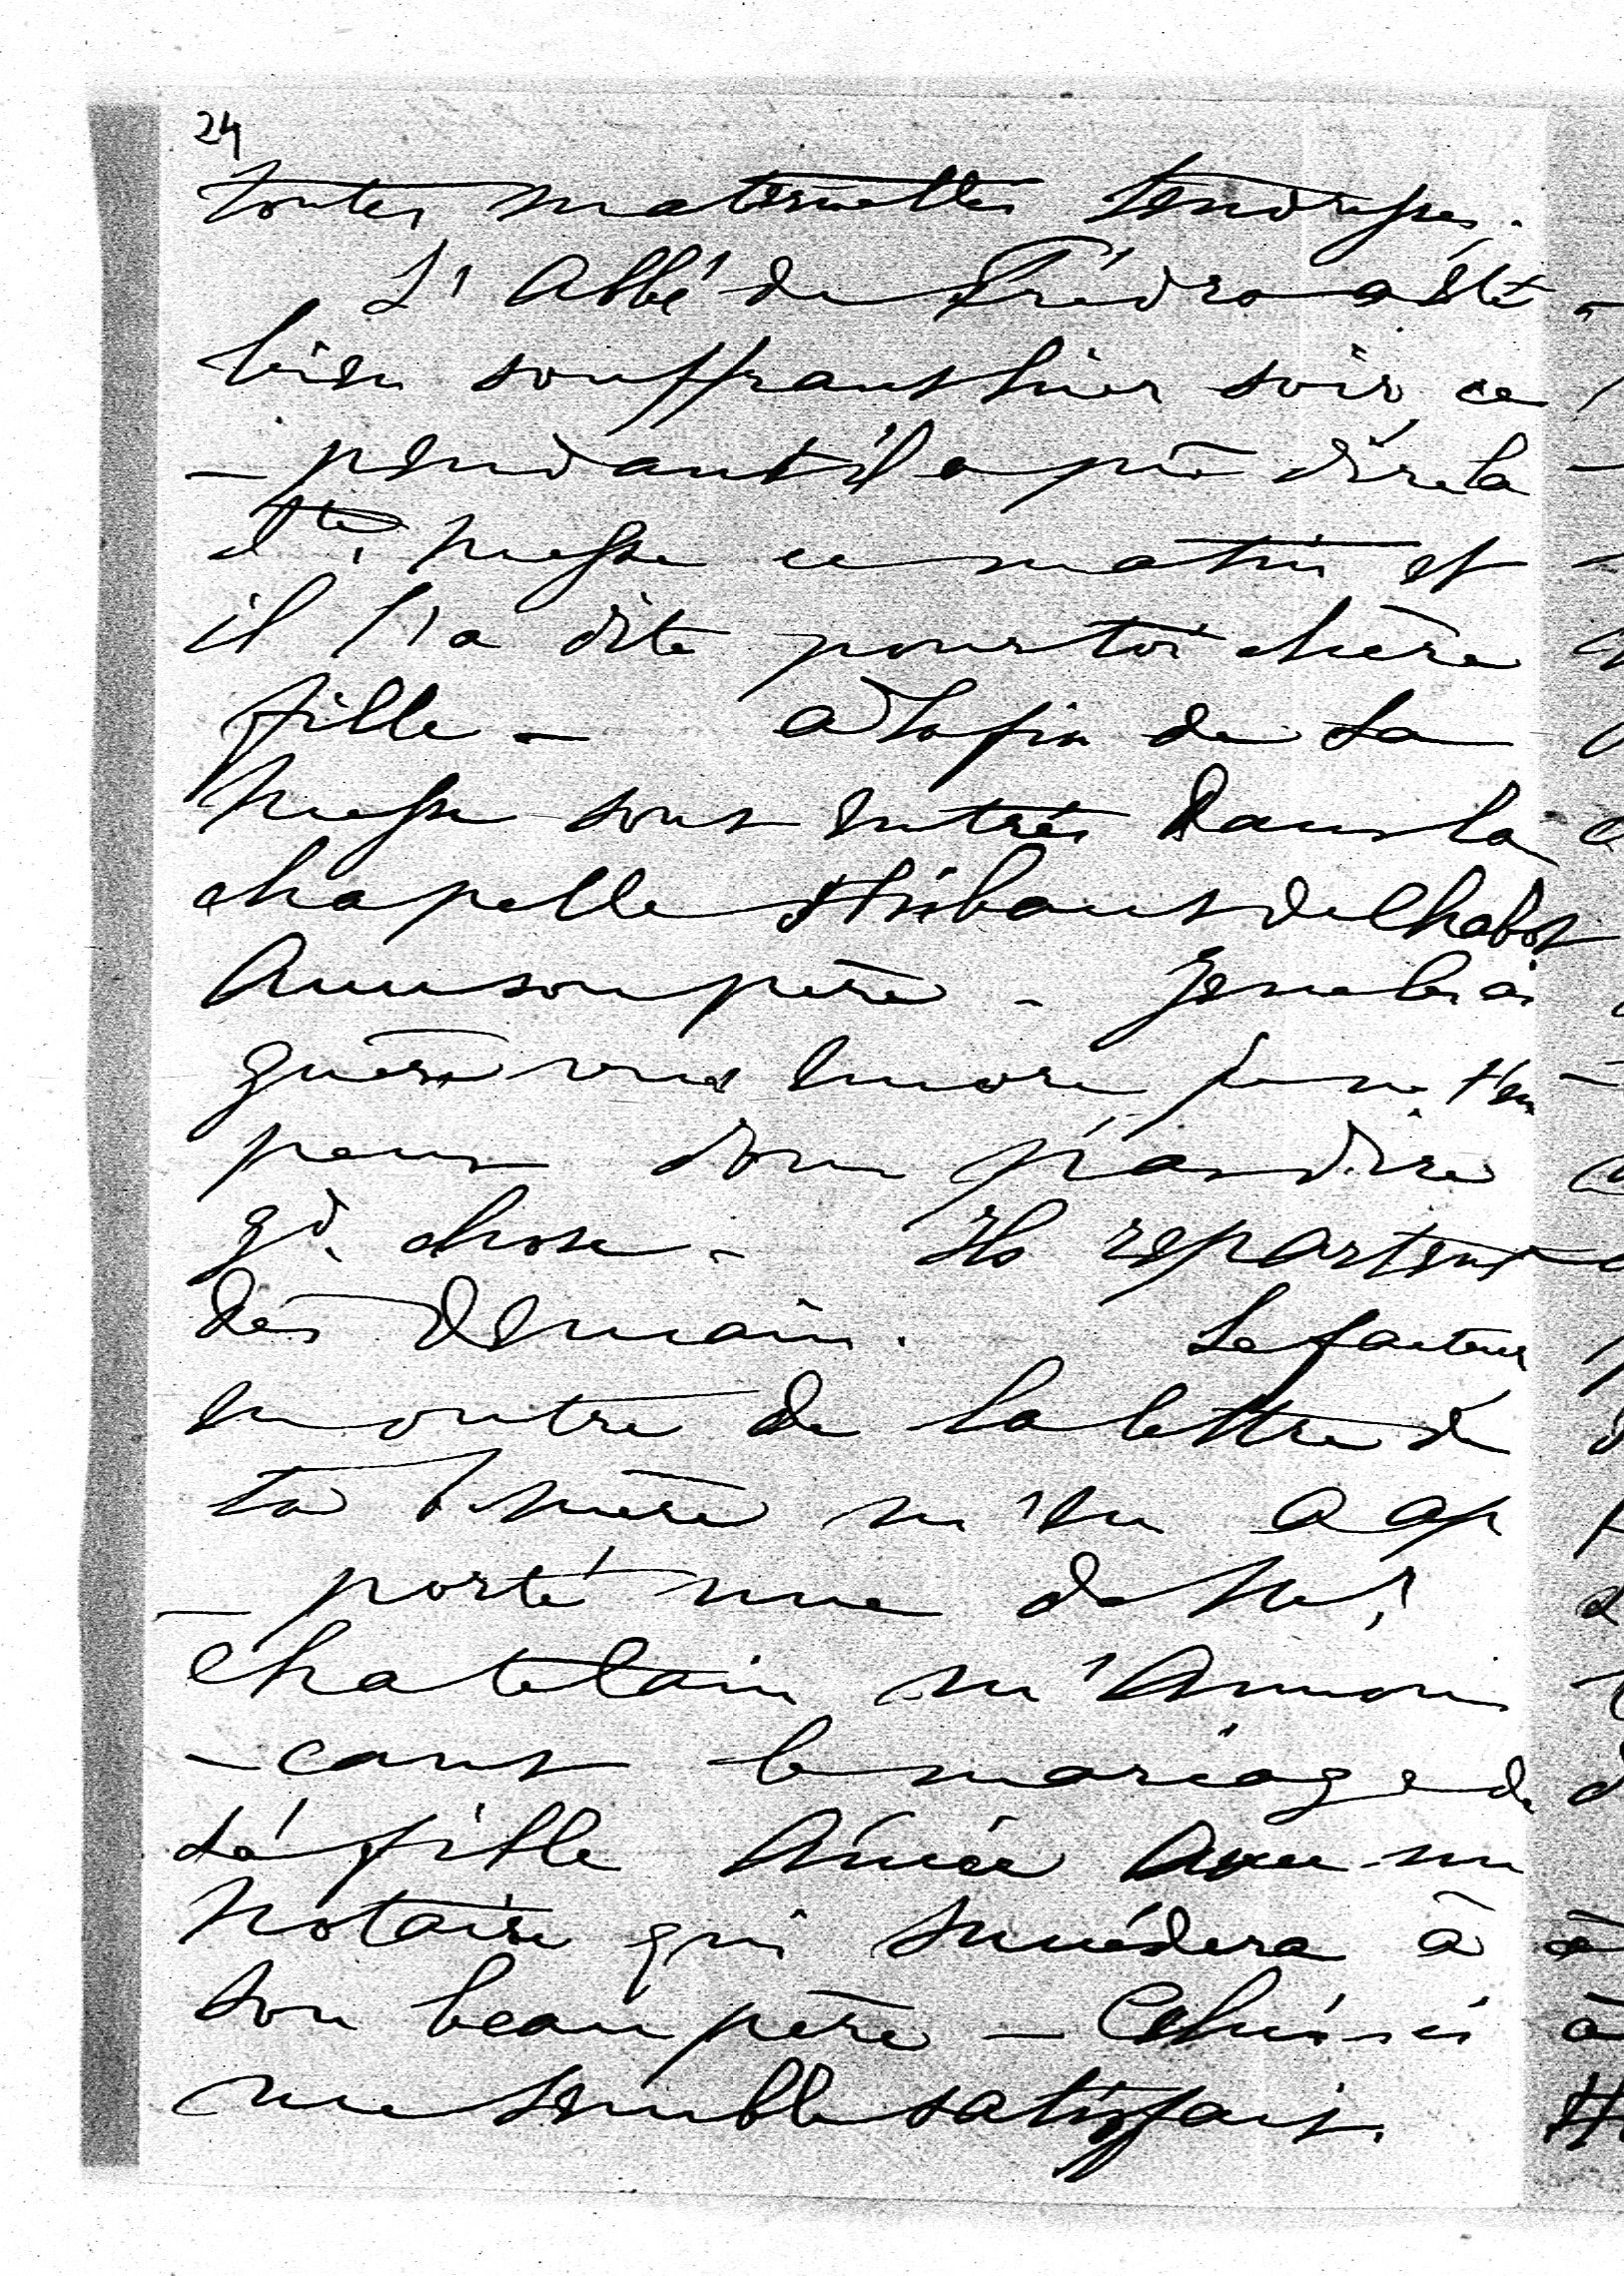 24
toutes maternelles tendresses.
L'Abbé de Prédro a été
bien souffrant hier soir, ce
- pendant il a pû dire la
ste messe ce matin et
il l'a dite pour toi chère
fille - à la fin de la
messe sont entrés dans la
chapelle Thibaut de Chabot
avec son père - Je ne les ai
guère vus encore je ne t'en
peux donc pas dire
gd. chose - Ils repartent
dès demain. Le facteur
en outre de la lettre de
ta b. mère m'en a ap
- porté une de Mr
Chatelain m'annon
- cant le mariage de
sa fille Aimée avec un
notaire qui succèdera à
son beau père - Celui-ci
me semble satisfait.